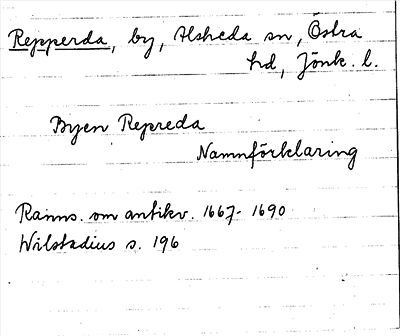 Repperda, by, Alsheda sn, Östra
hd, Jönk. l.
Byen Repreda
Namnförklaring
Ranns. om antikv. 1667-1690
Wilstadius s. 196